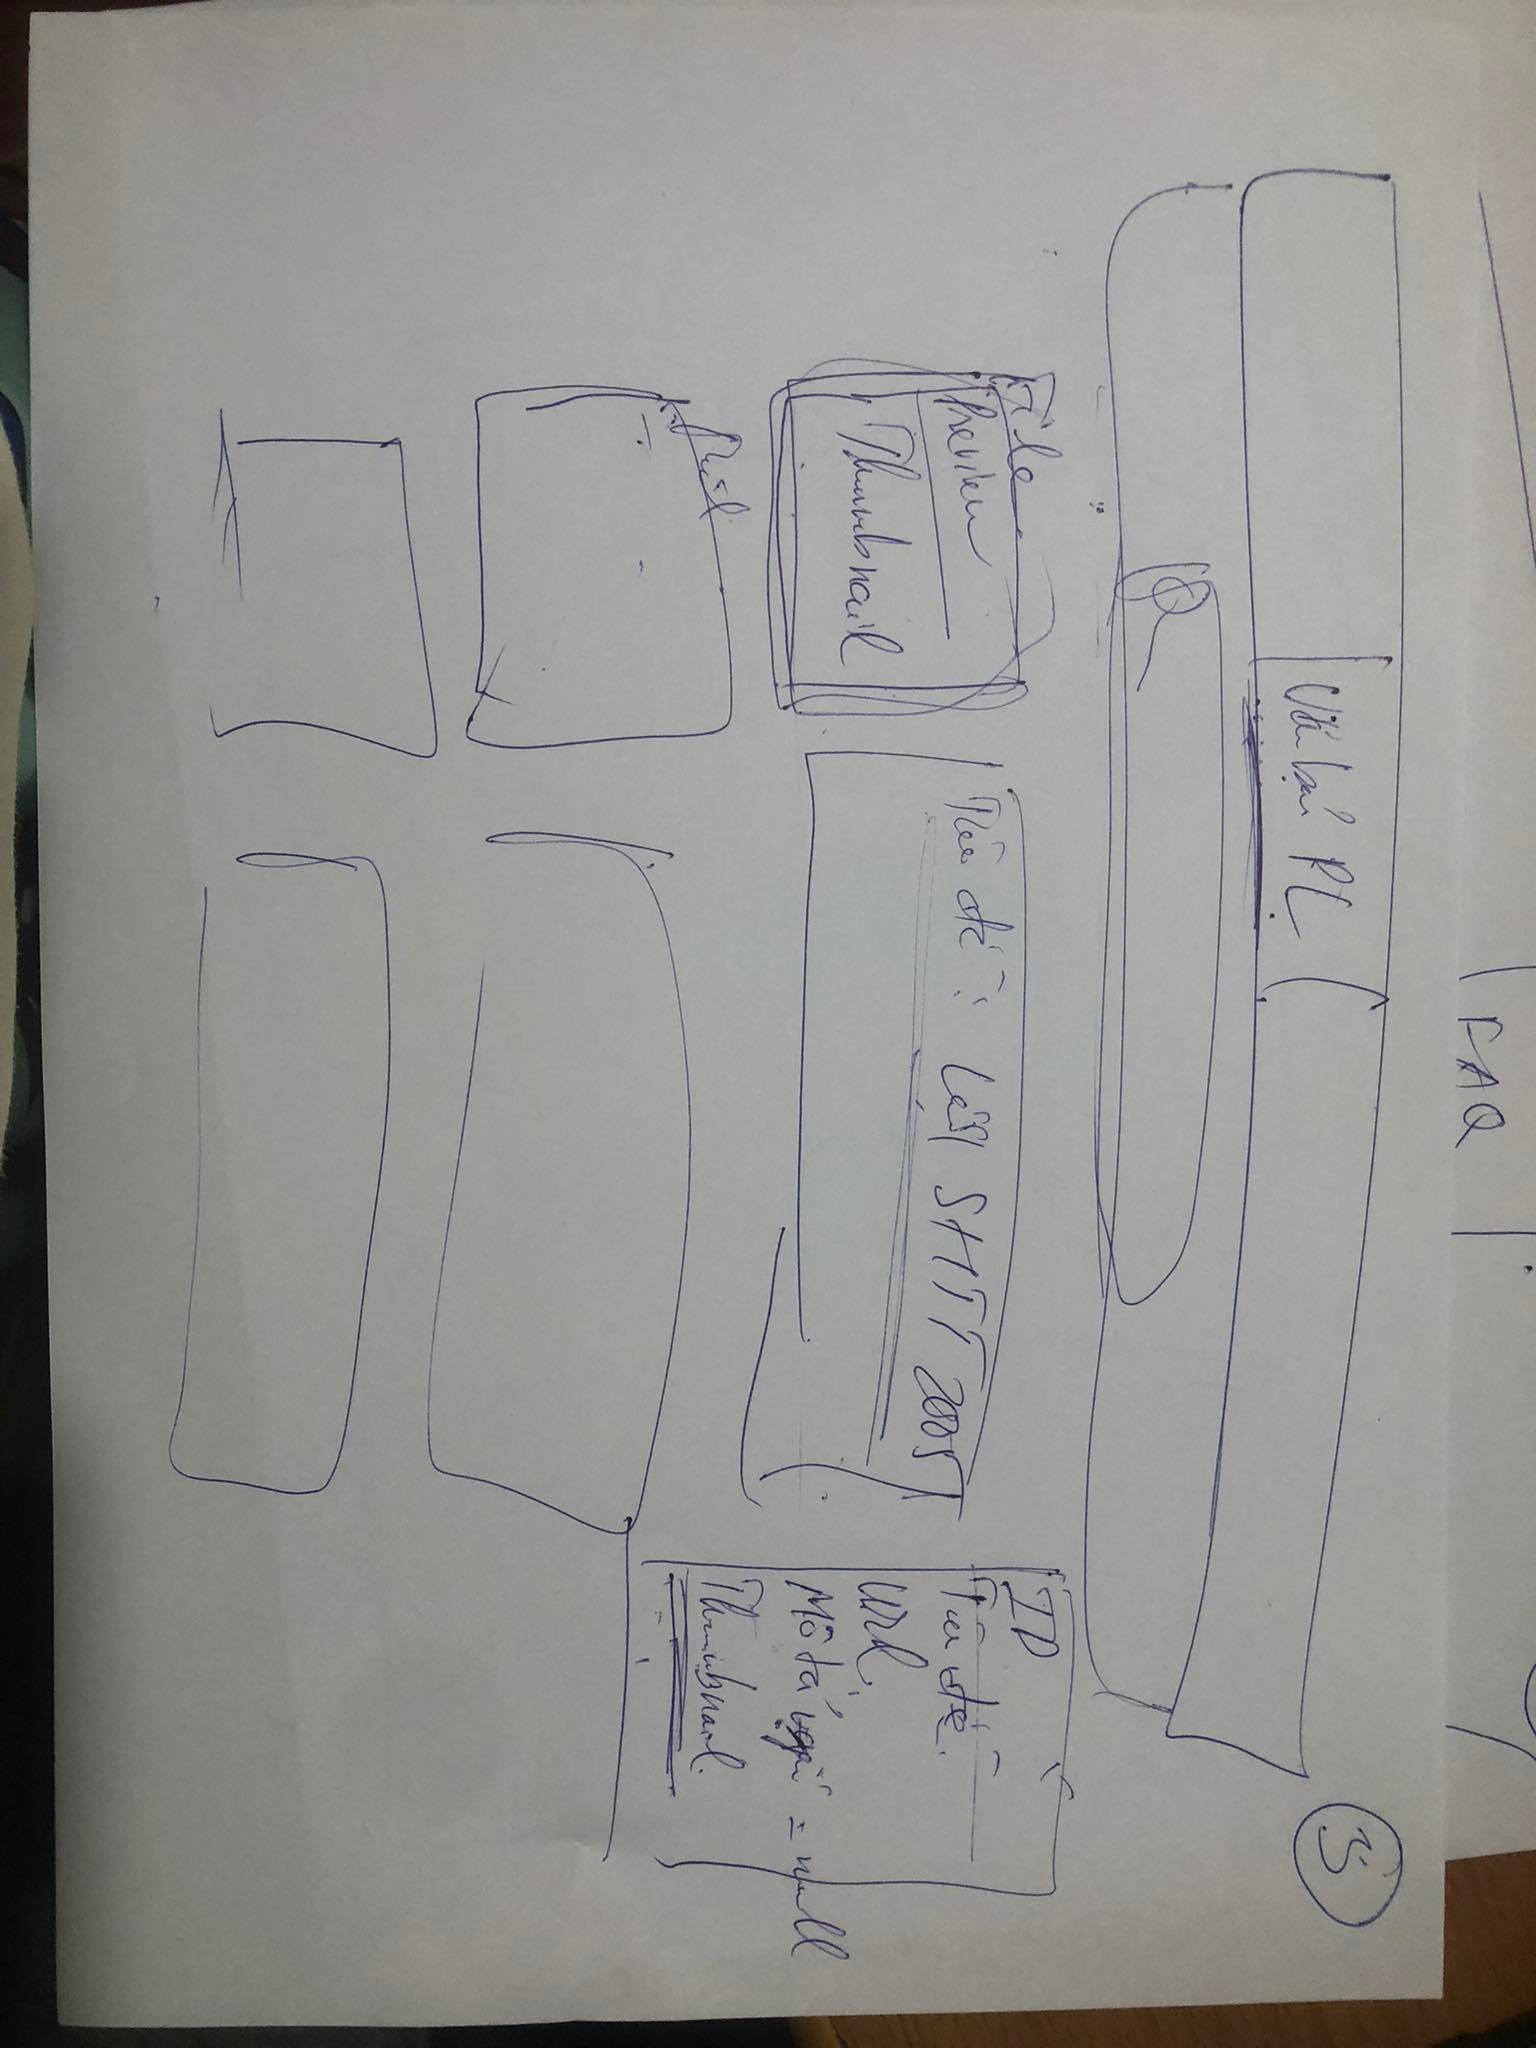 FAQ
Văn bản PL
File
Preview
Thumbnail
Tiêu đề: Luật SHTT 2005
ID
Tiêu đề.
Url.
Mô tả ngắn = null
Thumbnail.